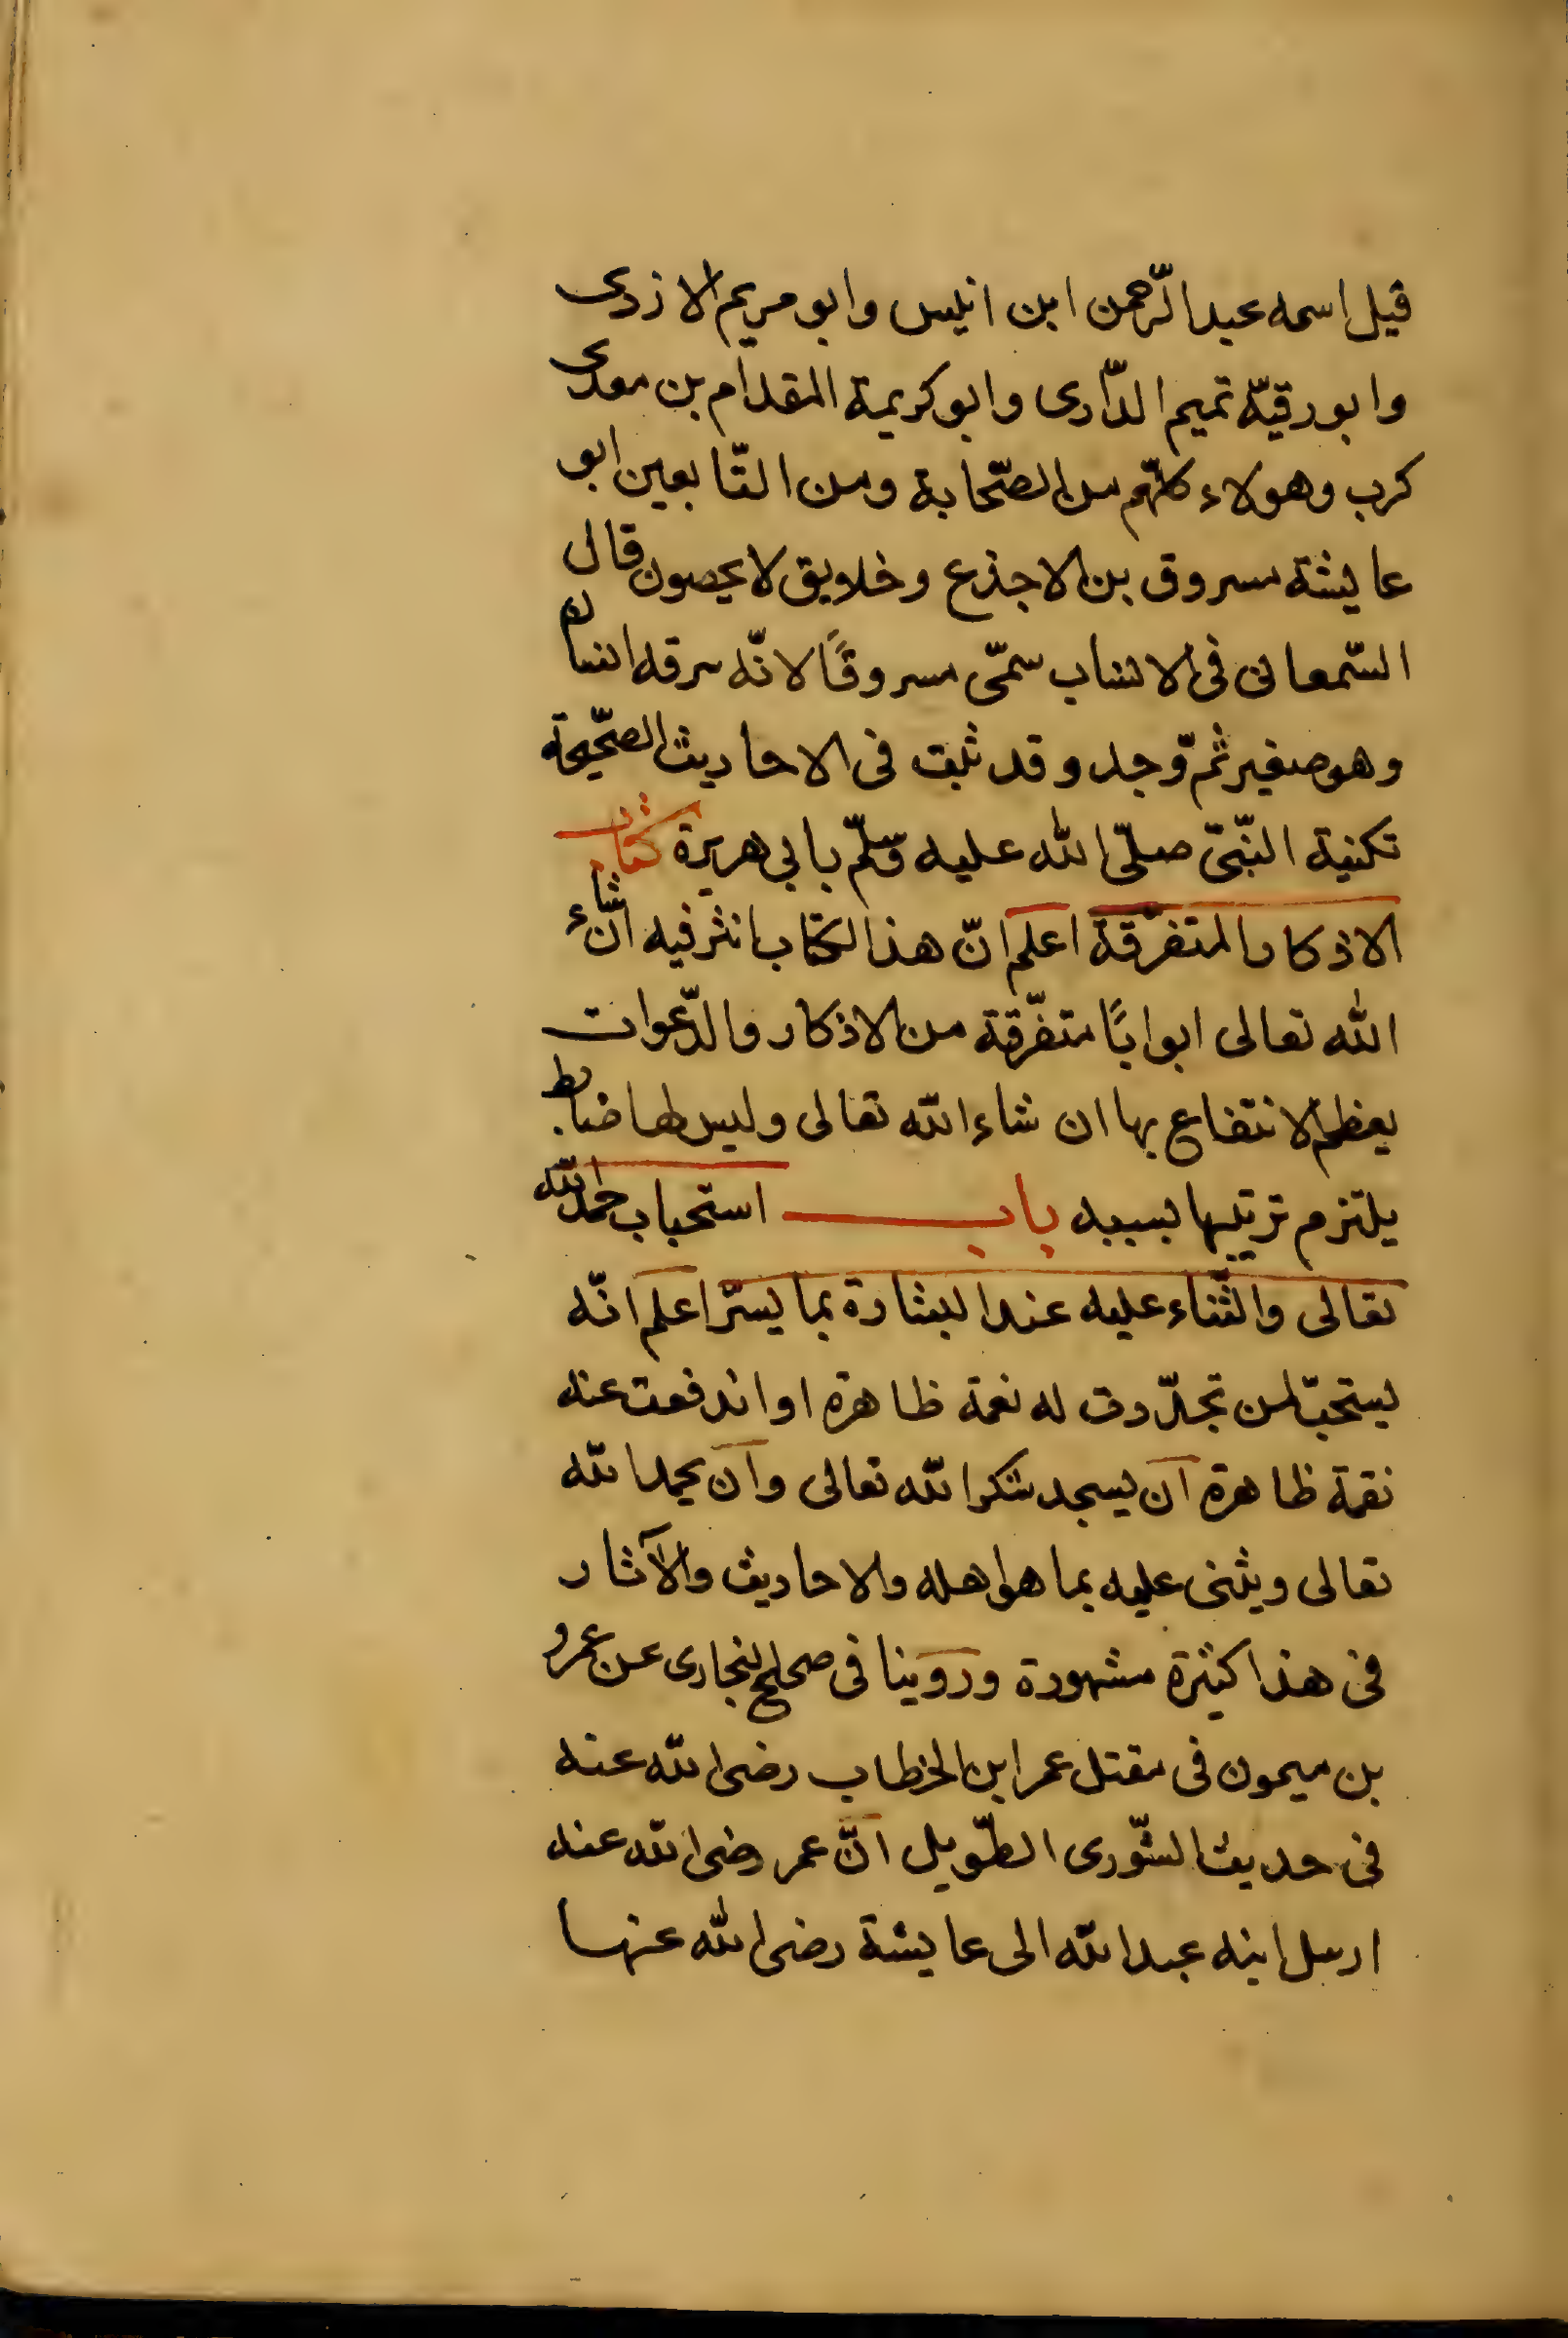 قيل اسمه عبد الرّحمن ابن انيس وابو مريم الازدى
وابو رقيّة تميم الدّارى وابو كريمة المقدام بن معدى
كرب وهولاء كلّهم من الصّحابة ومن التّابعين ابو
عايشة مسروق بن الاجذع وخلايق لا يحصون قال
السّمعانى فى الانساب سمّى مسروقًا لانّه سرقه انسان
وهو صغير ثمّ وجد وقد ثبت فى الاحاديث الصّحيحة
تكنية النّبىّ صلّى الله عليه وسلّم بابى هريرة كتاب
الاذكار المتفرّقة اعلم انّ هذا الكتاب انثر فيه ان شاء
الله تعالى ابوابًا متفرّقة من الاذكار والدّعوات
يعظم الانتفاع بها ان شاء الله تعالى وليس لها ضابط
يلتزم ترتيبها بسببه باب استحباب حمد الله
تعالى والثّناء عليه عند البشارة بما يسرّ اعلم انّه
يستحبّ لمن تجدّدت له نعمة ظاهرة او اندفعت عنه
نقمة ظاهرة ان يسجد شكرا لله تعالى وان يحمد الله
تعالى ويثنى عليه بما هو اهله والاحاديث والآثار
فى هذا كثيرة مشهورة وروينا فى صحيح البخارى عن عمرو
بن ميمون فى مقتل عمر ابن الخطاب رضى الله عنه
فى حديث الشّورى الطّويل انّ عمر رضى الله عنه
ارسل ابنه عبد الله الى عايشة رضى الله عنها